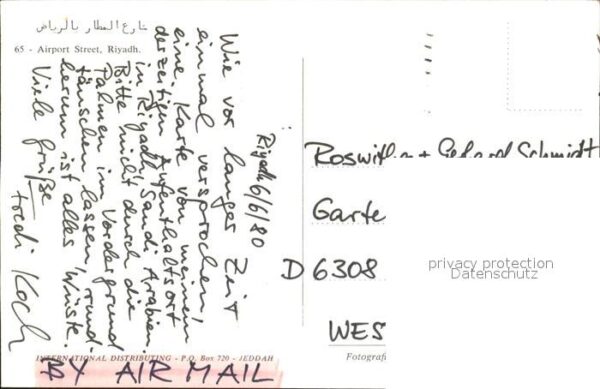 شارع المطار بالرياض
65 - Airport Street, Riyadh.
Riyadh 6/6/80
Wie vor langer Zeit
einmal versprochen,
eine Karte von meinem
derzeitigen Aufenthaltsort
in Riyadh, Saudi Arabien.
Bitte nicht durch die
Palmen im Vordergrund
täuschen lassen, rund-
herum ist alles Wüste.
Viele Grüße
Koch
Roswitha + Gerhard Schmidt
Garte
D 6308
WES
privacy protection
Datenschutz
Fotografi
INTERNATIONAL DISTRIBUTING - P.O. Box 720 - JEDDAH
BY AIR MAIL